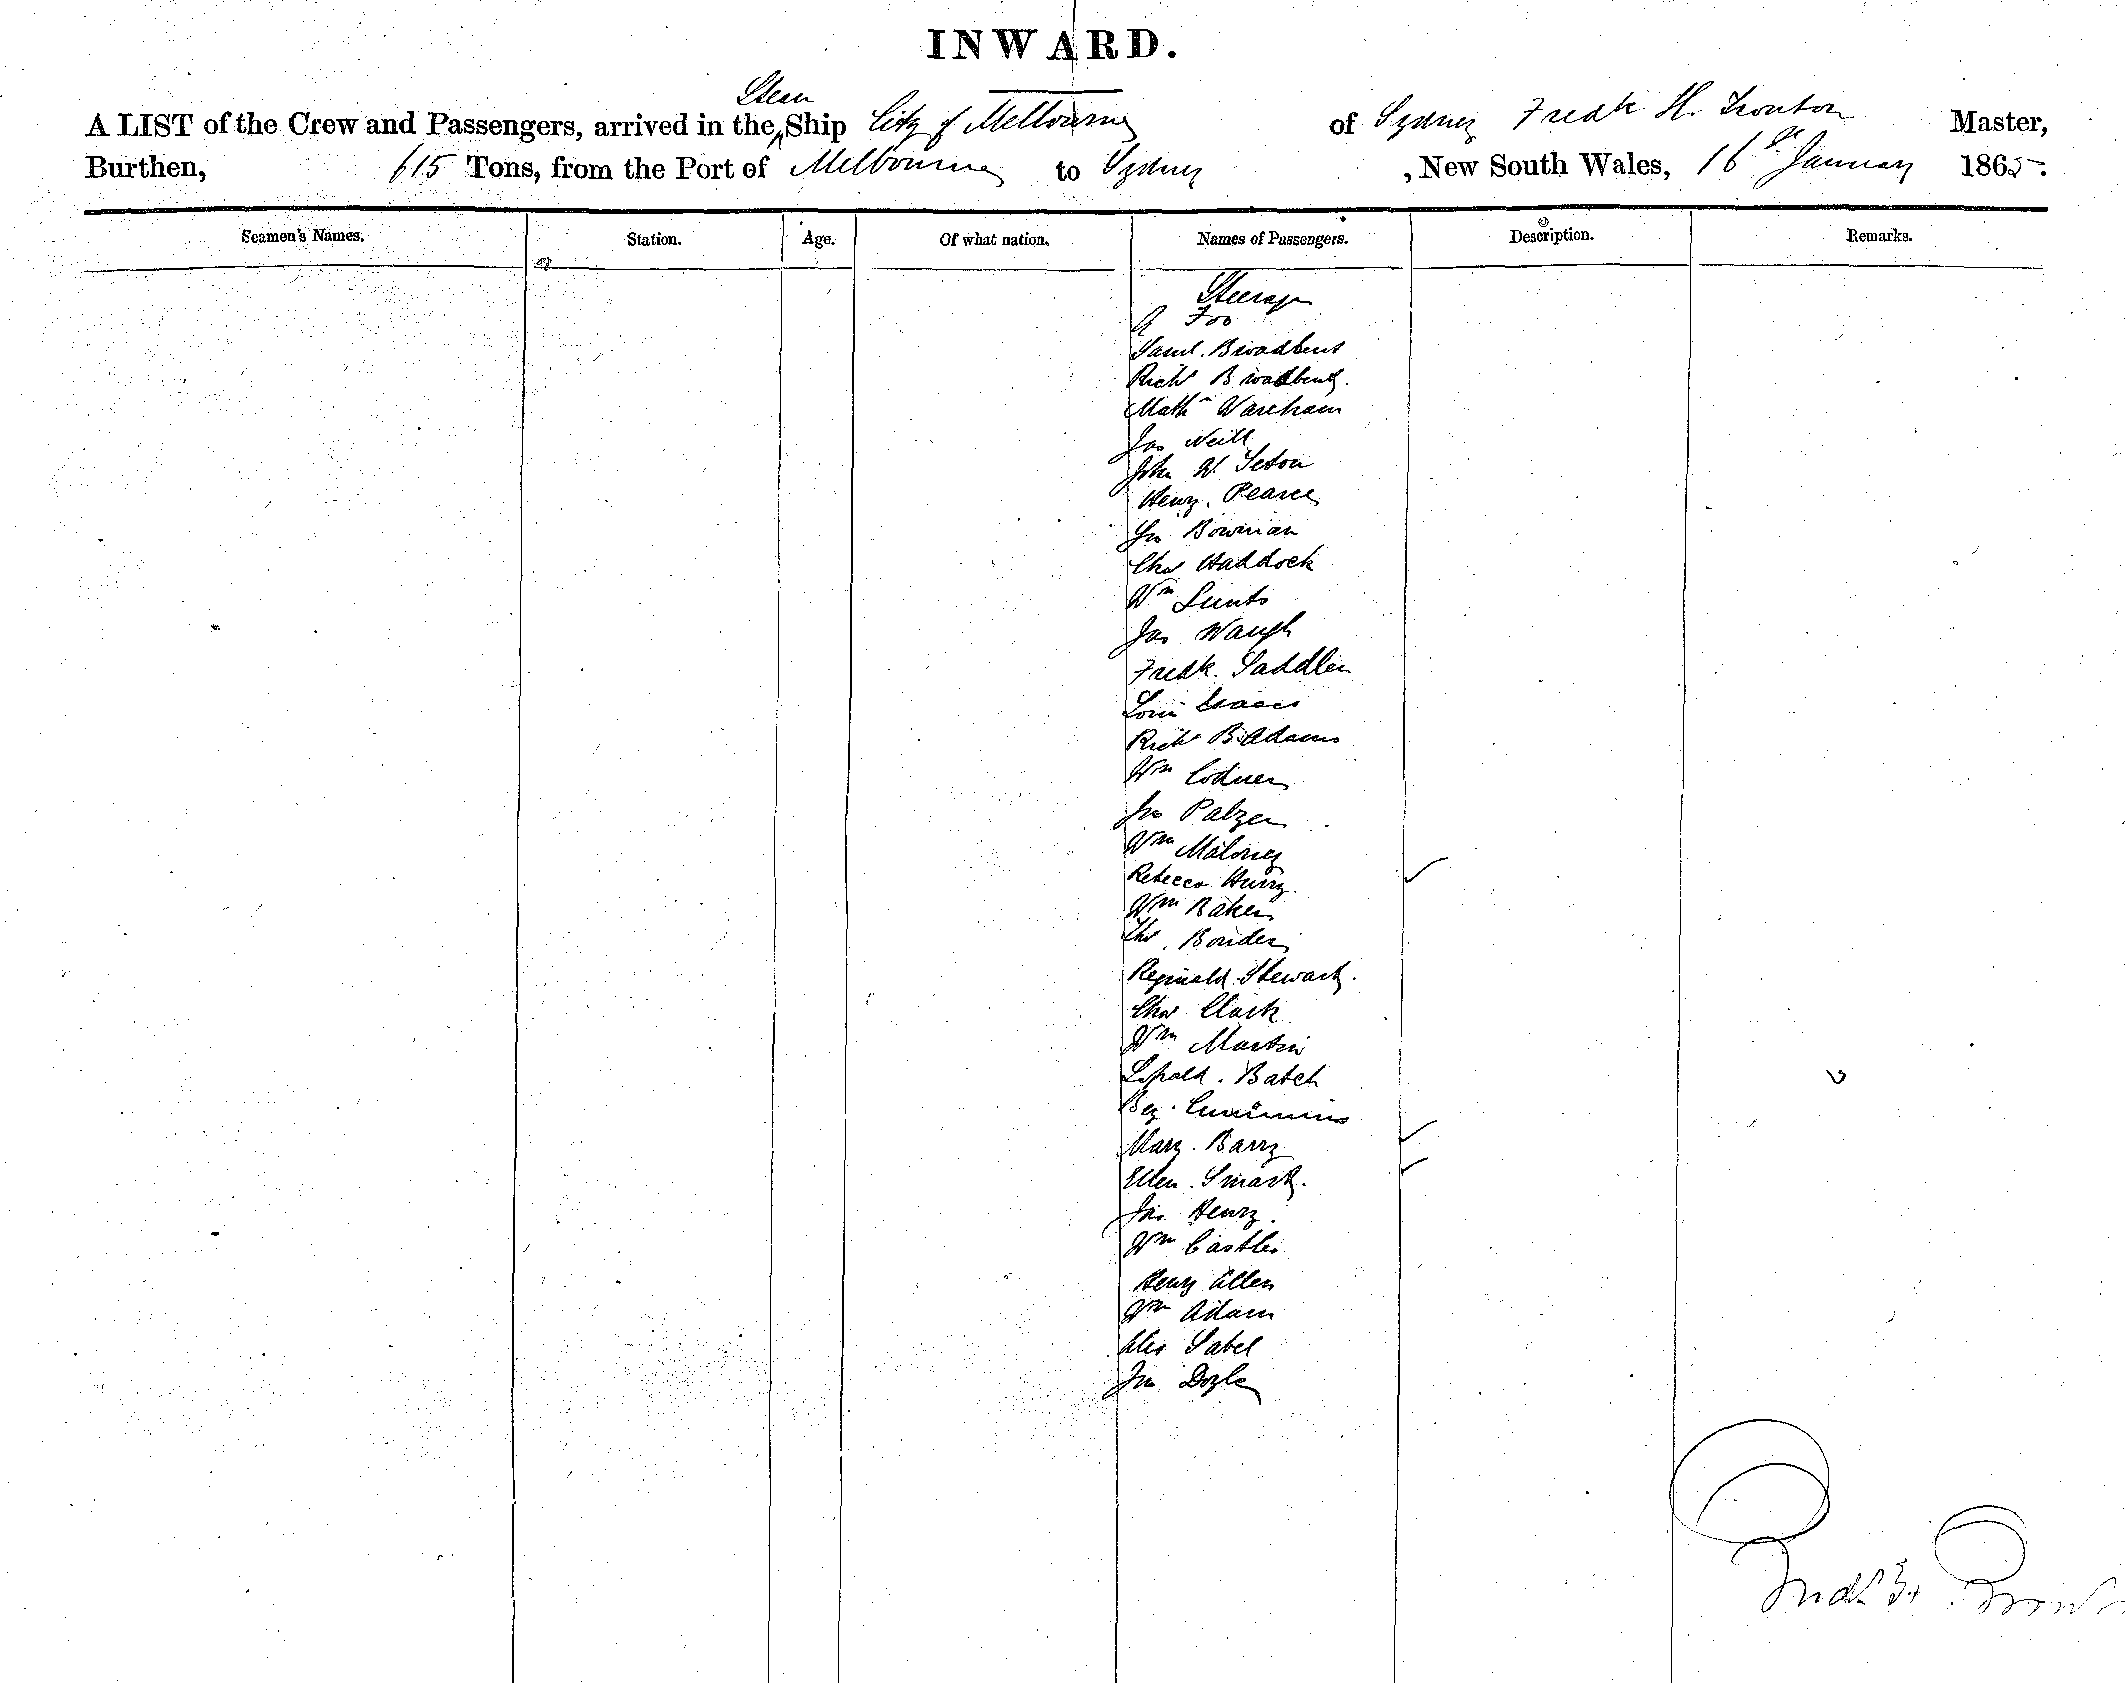 INWARD.
Steam
A LIST of the Crew and Passengers, arrived in the Ship City of Melbourne of Sydney Fredk H. Trouton Master,
Burthen, 615 Tons, from the Port of Melbourne to Sydney , New South Wales, 16th January 1865.
Seamen's Names. Station. Age. Of what nation. Names of Passengers. Description. Remarks.
Steerage
A Foo
Saml. Broadbent
Richd Broadbent.
Mathw Wareham
Jas Neill
John W. Seton
Henry. Pearce
Jno Bowman
Chas Haddock
Wm
Jas Waugh
Fredk. Saddler
Louis Isaacs
Richd B. Adams
Wm Codner
Jno Palzer
Wm Maloney
Rebecca Hurry
Wm Baker
Bouder
Reginald Stewart.
Chas Clark
Wm Martin
Batch
Cummins
Mary. Barry
Ellen. Smart.
Jas Henry.
Wm Castles
Henry Allen
Wm Adam
Alex Sabel
Jno Doyle
Fredk H. Trouton